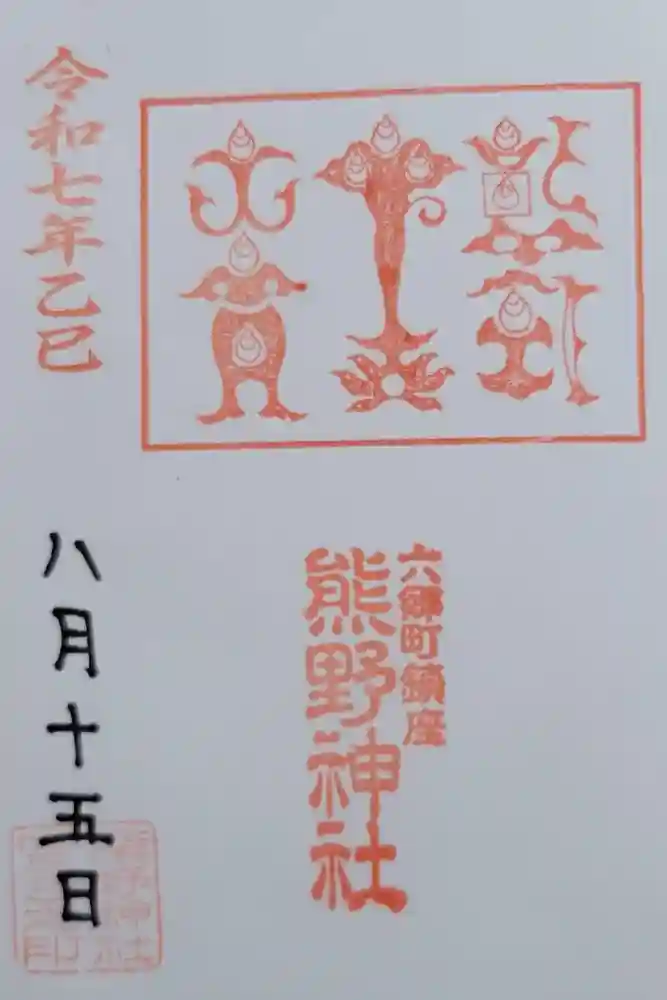 六郷町鎮座
熊野神社
令和七年乙巳
八月十五日